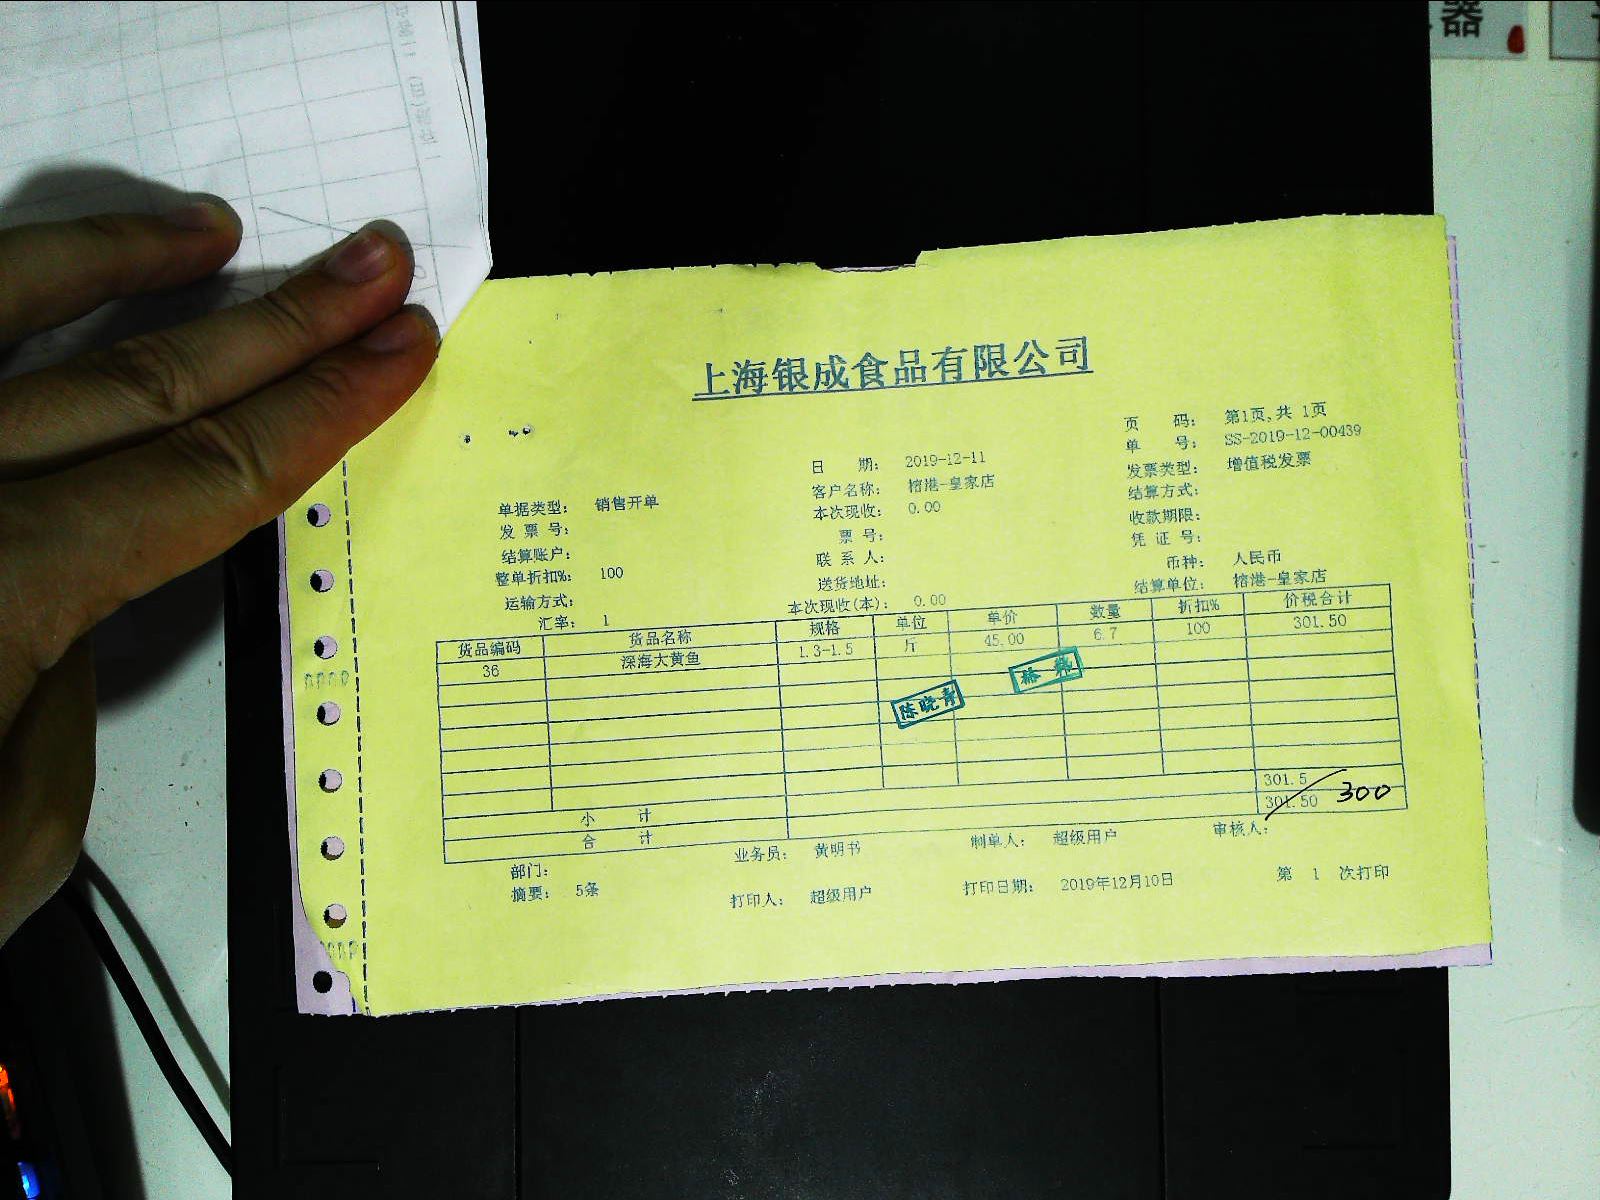 器
上海银成食品有限公司
页 码： 第1页,共 1页
单 号： SS-2019-12-00439
日 期： 2019-12-11 发票类型： 增值税发票
单据类型： 销售开单 客户名称： 榕港-皇家店 结算方式：
发 票 号： 本次现收： 0.00 收款期限：
结算账户： 票 号： 凭 证 号：
整单折扣%： 100 联 系 人： 币种： 人民币
运输方式： 送货地址： 结算单位： 榕港-皇家店
汇率： 1 本次现收(本)： 0.00
货品编码 货品名称 规格 单位 单价 数量 折扣% 价税合计
36 深海大黄鱼 1.3-1.5 斤 45.00 6.7 100 301.50
陈晓青
小 计 301.5
合 计 301.50 300
部门： 业务员： 黄明书 制单人： 超级用户 审核人：
摘要： 5条 打印人： 超级用户 打印日期： 2019年12月10日 第 1 次打印